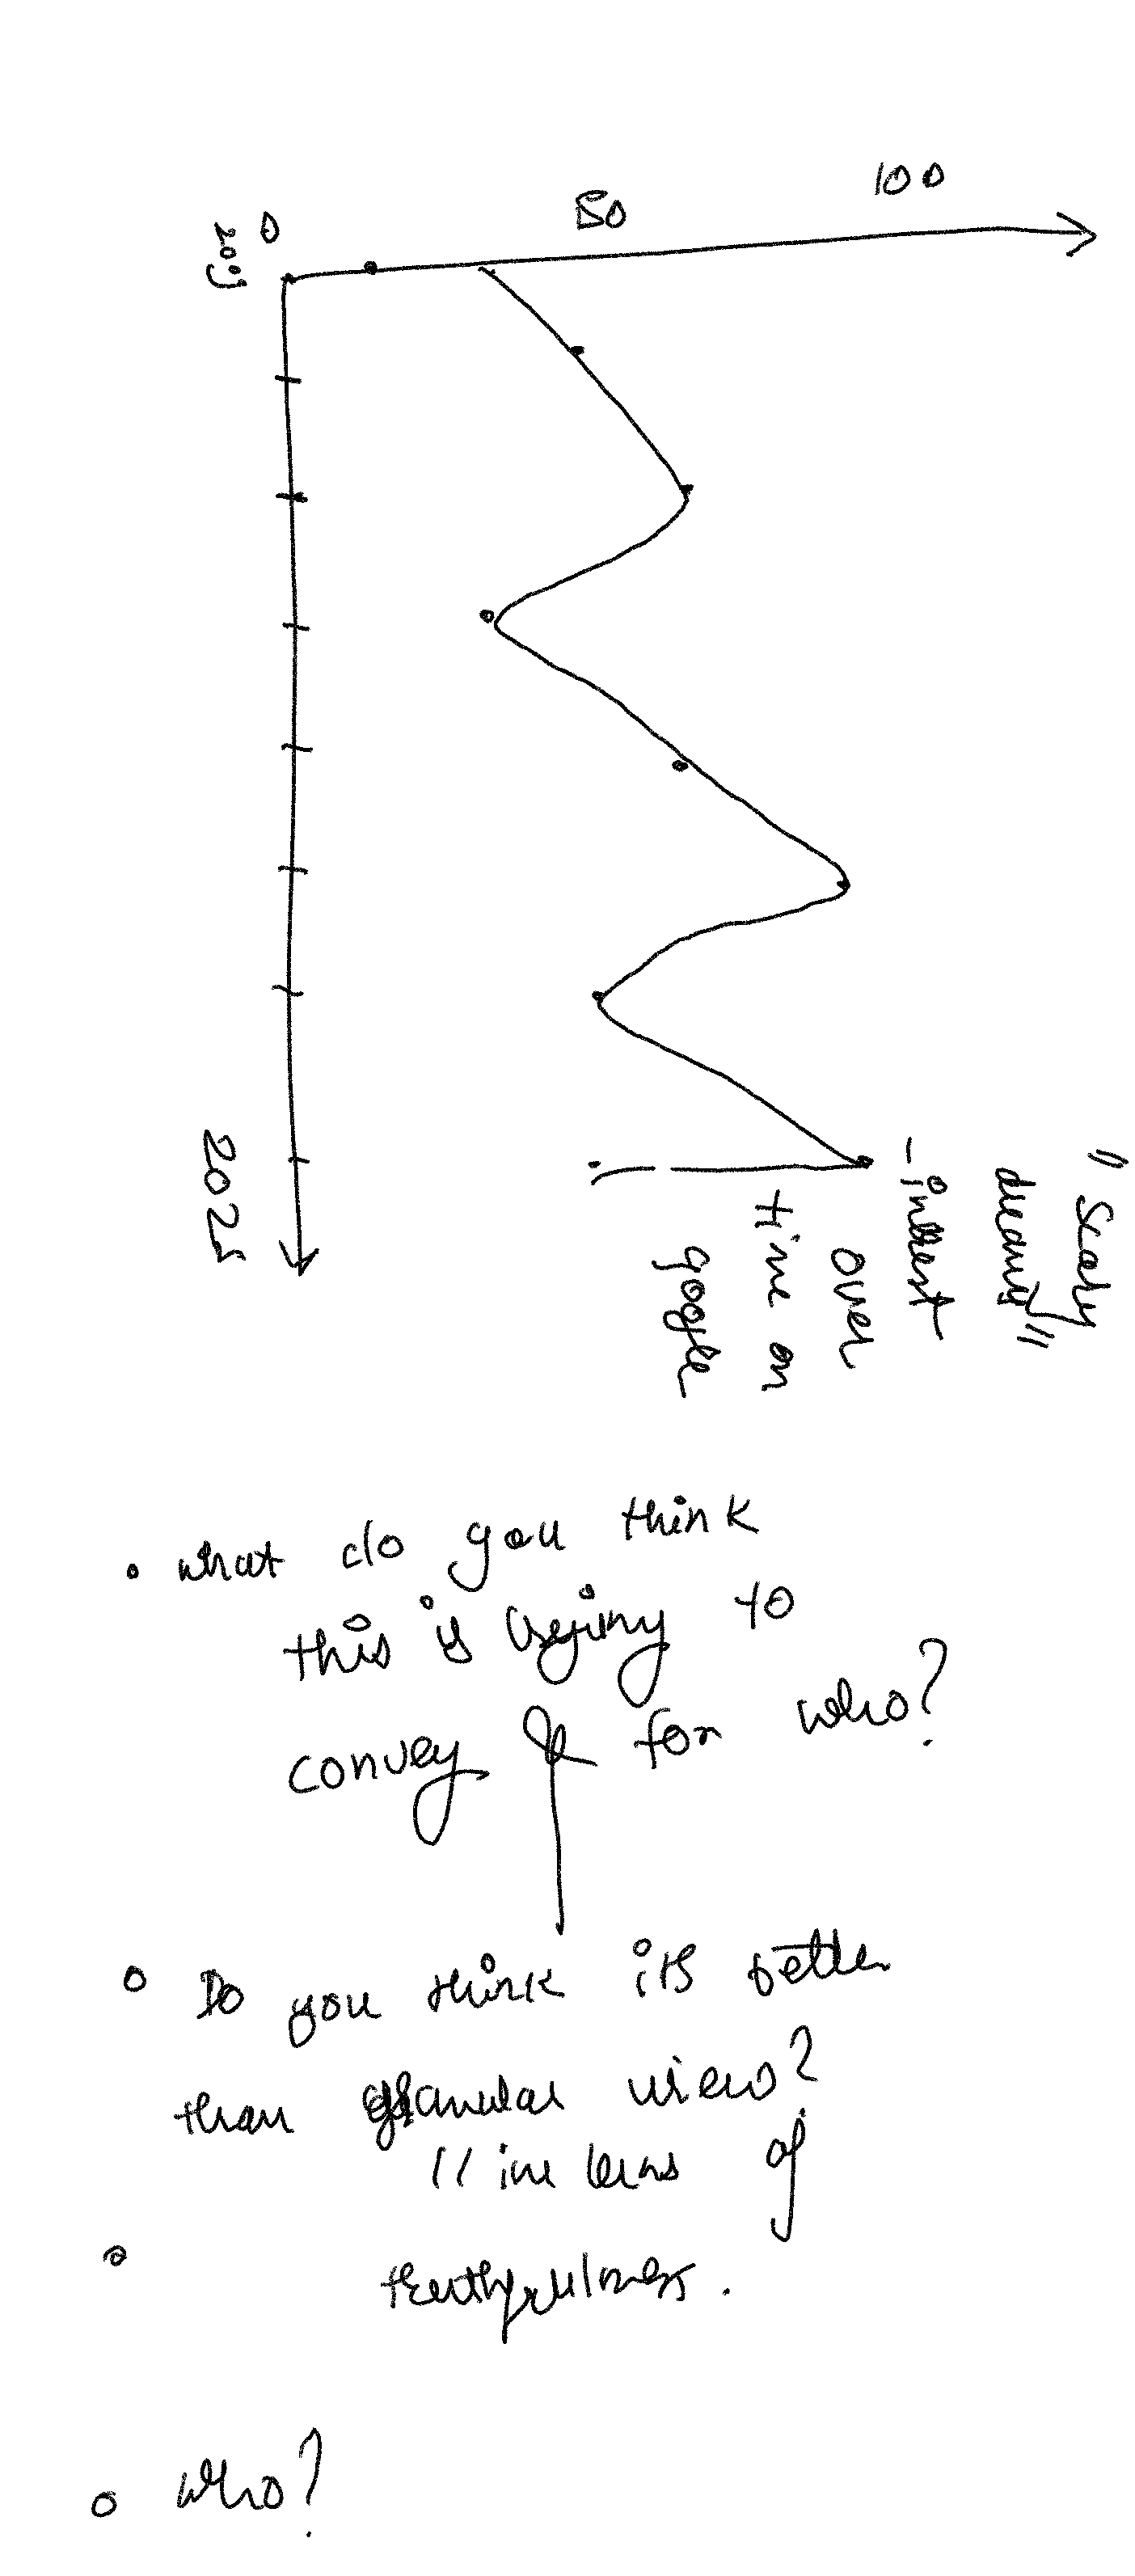 100
50
0
2025
"Scary
dreams"
- intrest
over
time on
google
• what do you think
this is trying to
convey & for who?
• Do you think its better
than granular view?
// in terms of
truthfulness.
• who?